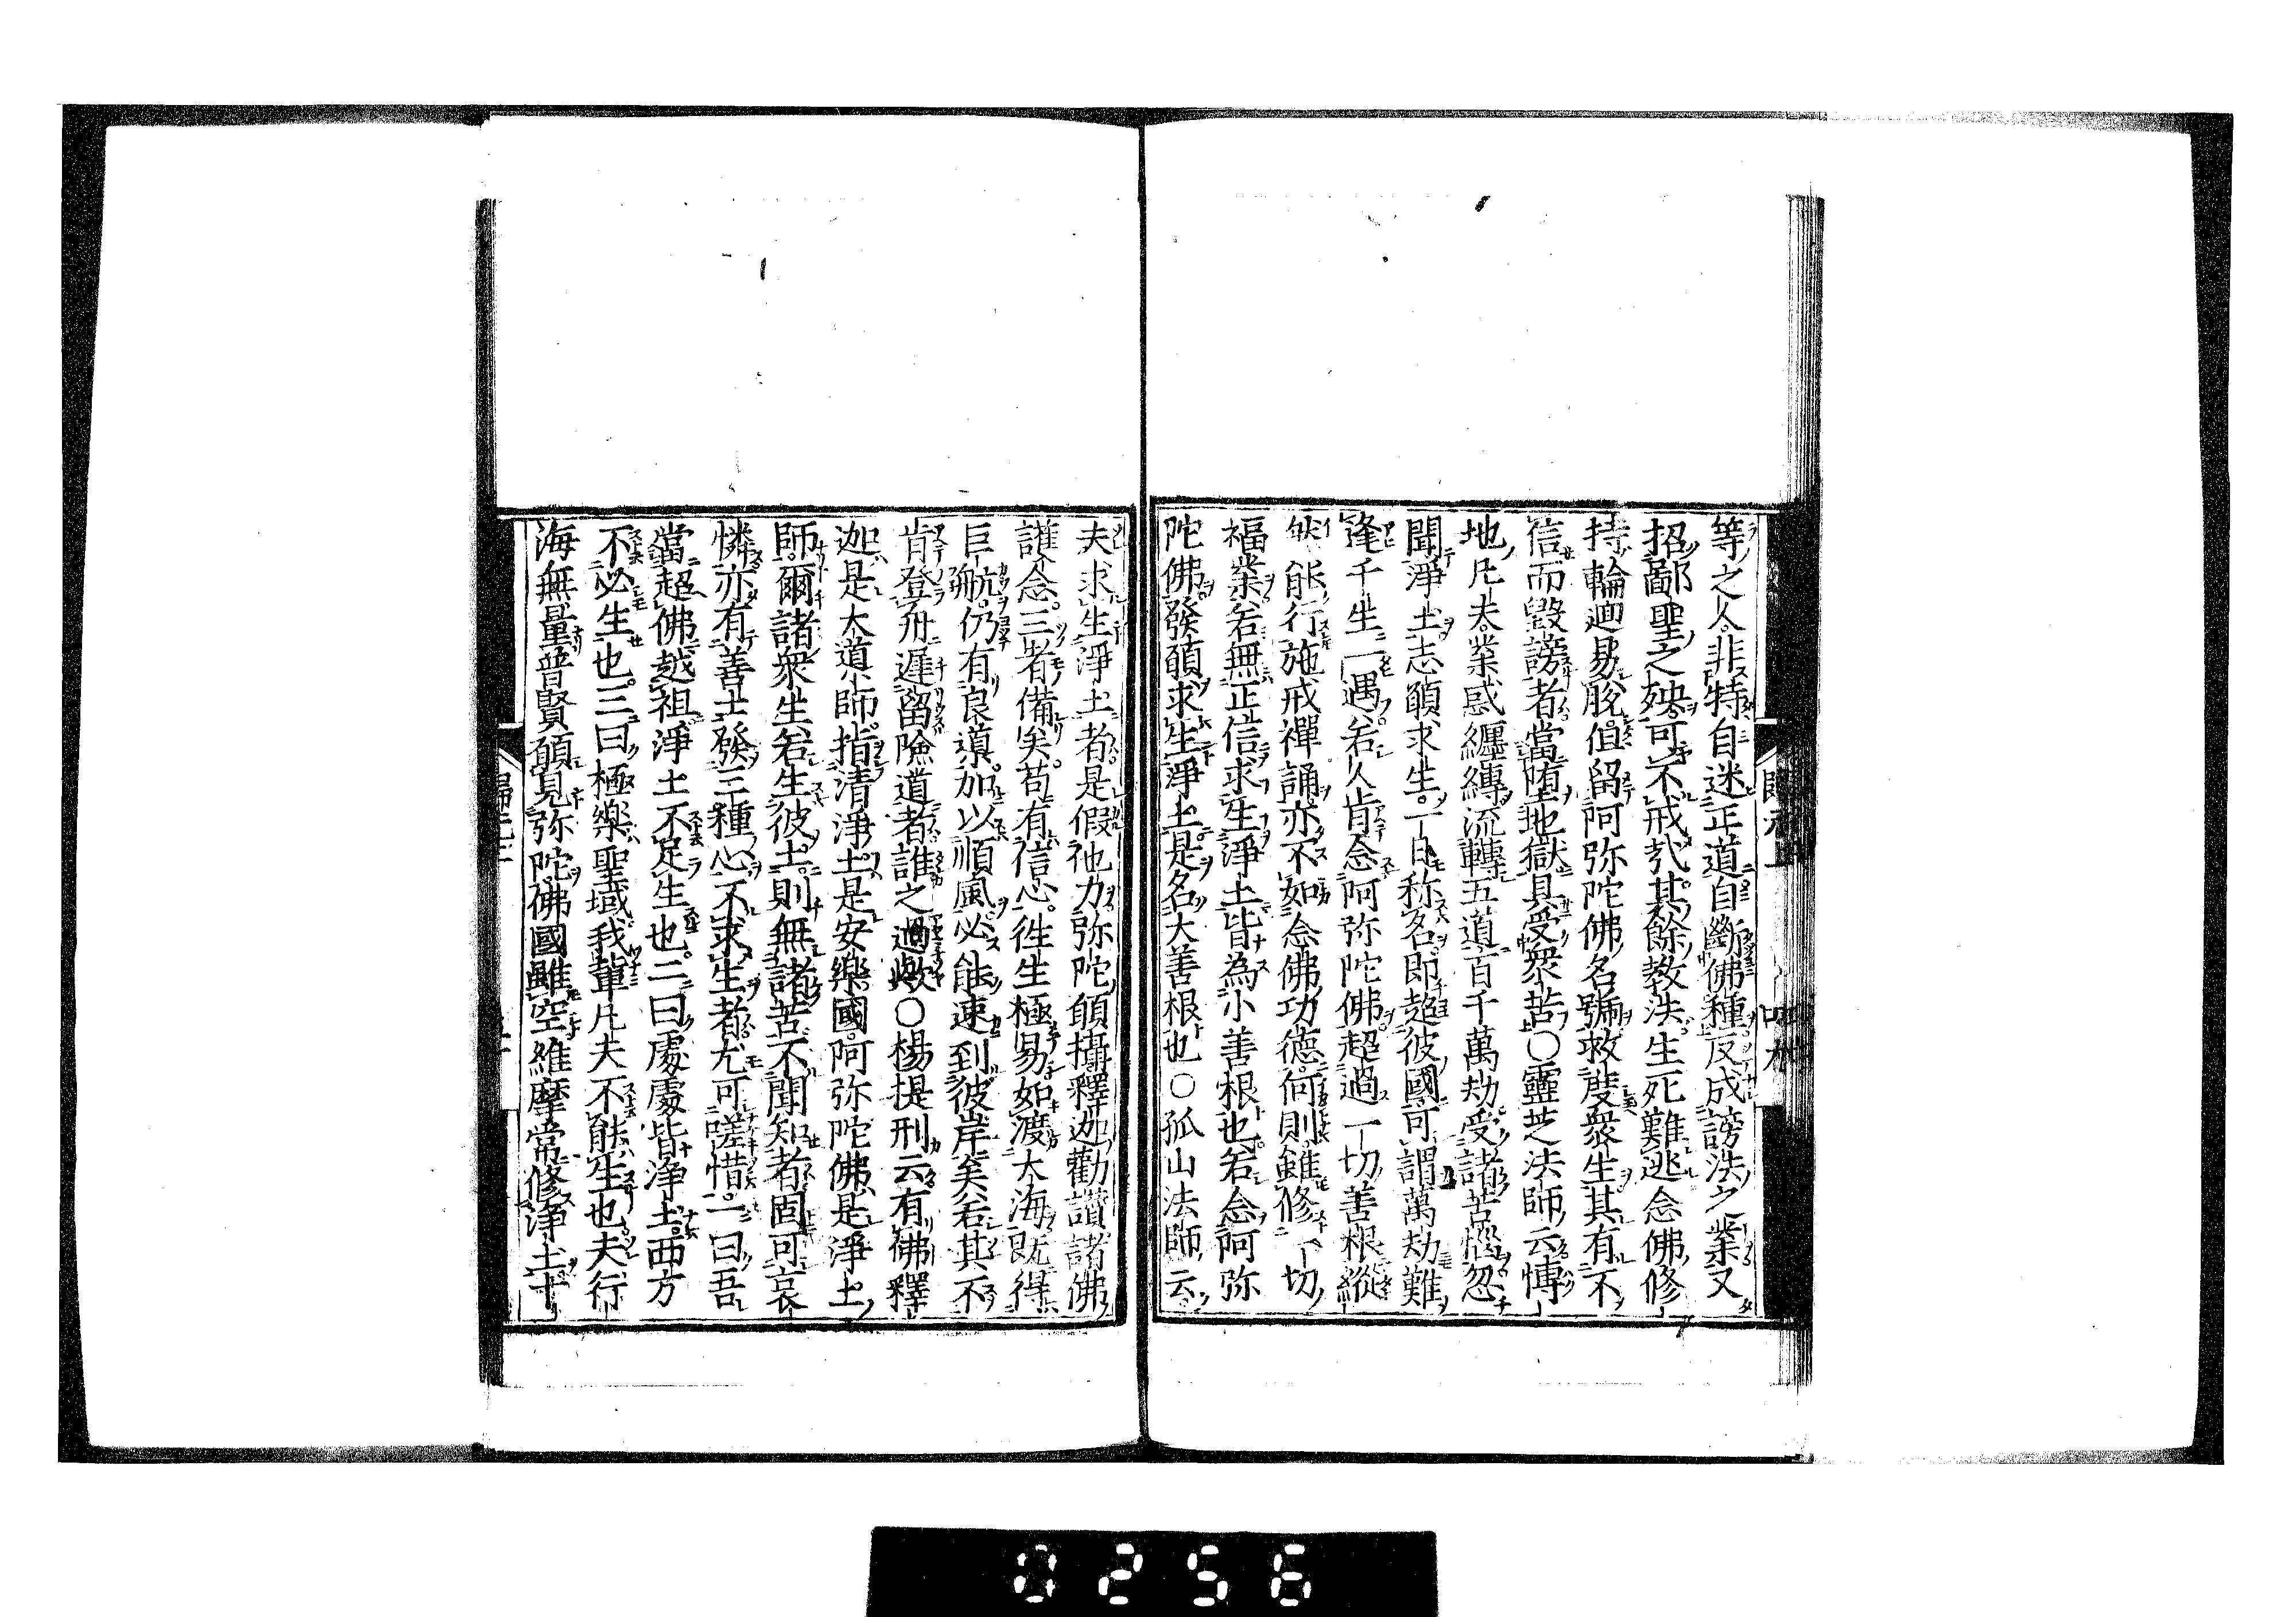 等之人非特自迷正道自斷佛種反成謗法之業又
招鄙聖之殃可不戒哉其餘教法生死難逃念佛修
持輪廻易脫値留阿弥陀佛名號救度衆生其有不
信而毀謗者當堕地獄具受衆苦○靈芝法師云慱
地凡夫業惑纒縛流轉五道百千萬劫受諸苦惱忽
聞淨土志願求生一日称名即超彼國可謂萬劫難
逢千生一遇若人肯念阿弥陀佛超過一切善根縱
然能行施戒禪誦亦不如念佛功德何則雖修一切
福業若無正信求生淨土皆為小善根也若念阿弥
陀佛發願求生淨土是名大善根也○孤山法師云
夫求生淨土者是假他力弥陀願攝釋迦勸讃諸佛
護念三者備矣苟有信心徃生極易如渡大海既得
巨航仍有良導加以順風必能速到彼岸矣若其不
肯登舟遲留險道者誰之過歟○楊提刑云有佛釋
迦是大導師指清淨土是安樂國阿弥陀佛是淨土
師爾諸衆生若生彼土則無諸苦不聞知者固可哀
憐亦有善士發三種心不求生者尤可嗟惜一曰吾
當超佛越祖淨土不足生也二曰處處皆浄土西方
不必生也三曰極樂聖域我輩凡夫不能生也夫行
海無量普賢願見弥陀佛國雖空維摩常修浄土十
歸元上
0256